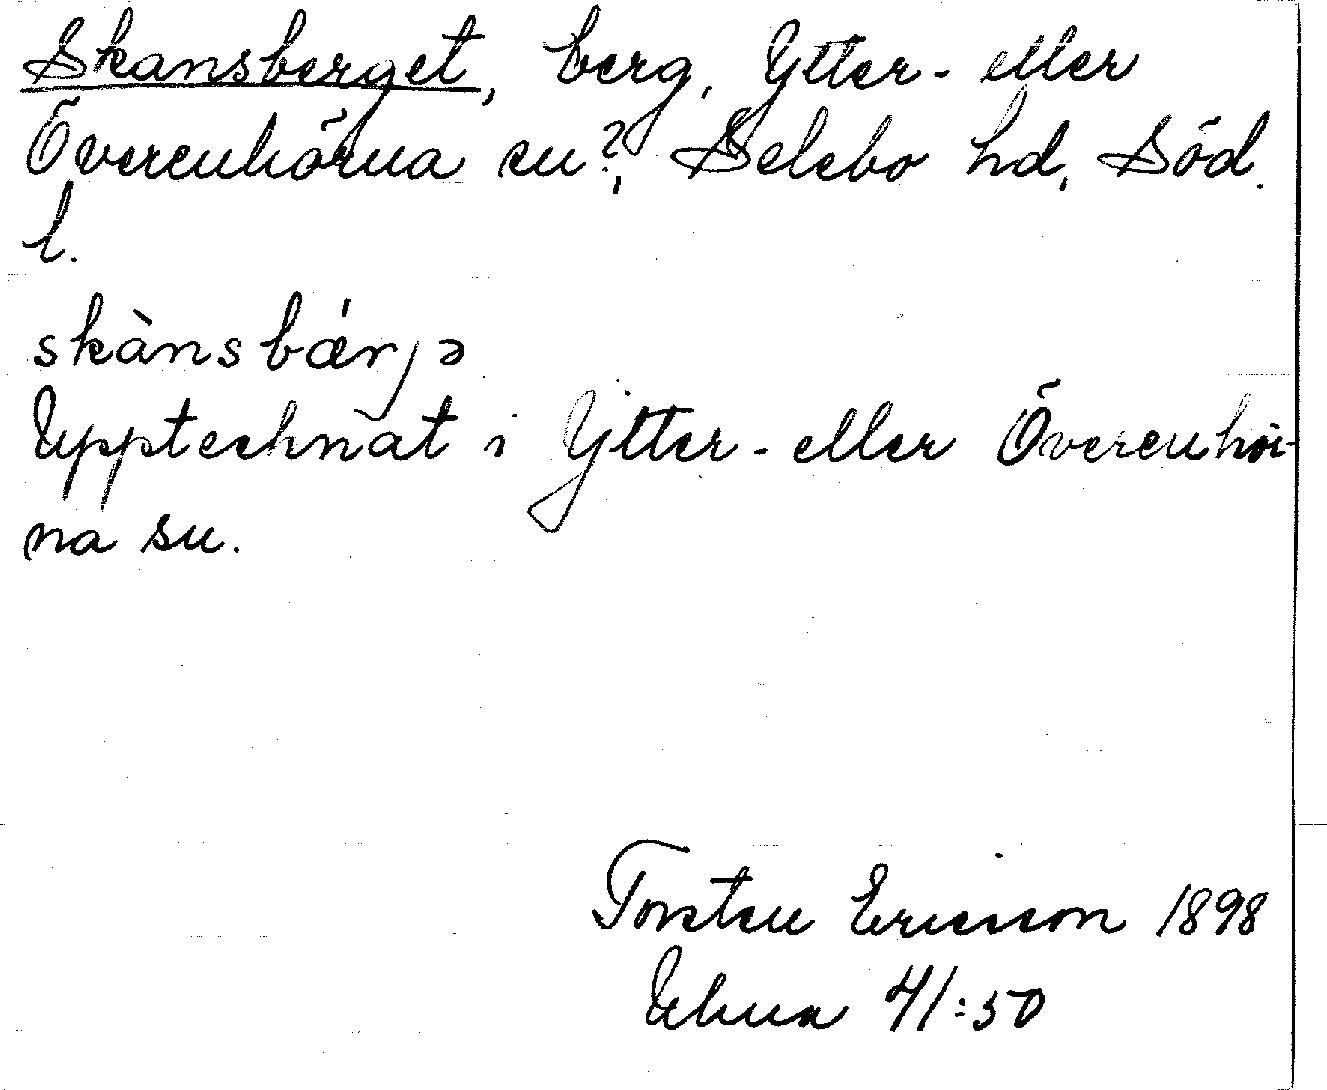 Skansberget, berg, Ytter- eller
Överenhörna sn?, Selebo hd, Söd.
l.
skànsbǽrjə
Upptecknat i Ytter- eller Överenhör-
na sn.
Torsten Ericsson 1898
41:50